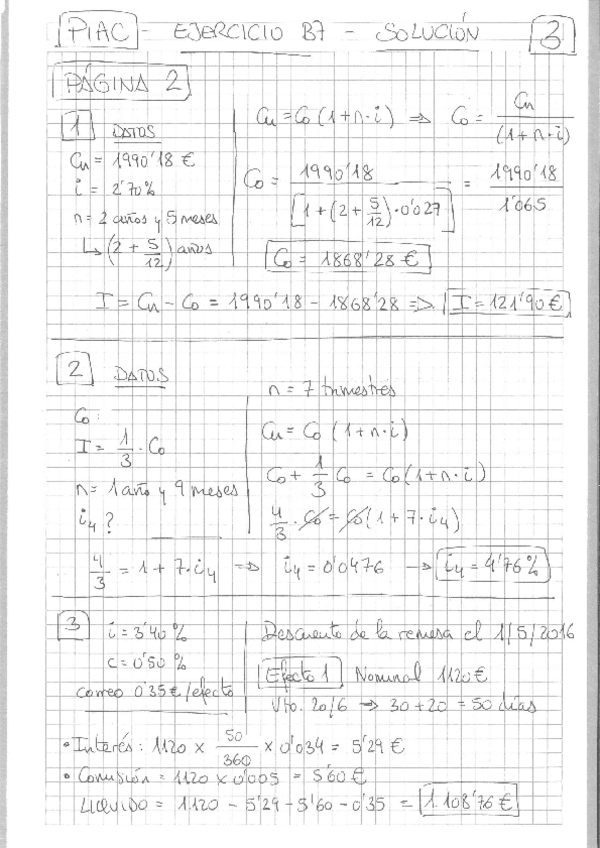 PIAC - EJERCICIO B7 - SOLUCIÓN 3
PÁGINA 2
1 DATOS
Cn = 1990'18 €
i = 2'70%
n = 2 años y 5 meses
↳ (2 + 5/12) años
Cn = Co (1+n·i) ⇒ Co = Cn / (1+n·i)
Co = 1990'18 / [1 + (2 + 5/12)·0'027] = 1990'18 / 1'065
Co = 1868'28 €
I = Cn - Co = 1990'18 - 1868'28 ⇒ I = 121'90 €
2 DATOS
Co:
I = 1/3 · Co
n = 1 año y 9 meses
i4 ?
n = 7 trimestres
Cn = Co (1+n·i)
Co + 1/3 Co = Co (1+n·i)
4/3 · Co = Co (1 + 7·i4)
4/3 = 1 + 7·i4 ⇒ i4 = 0'0476 → i4 = 4'76%
3 i = 3'40 %
c = 0'50 %
correo 0'35 €/efecto
Descuento de la remesa el 1/5/2016
Efecto 1 Nominal 1120 €
Vto. 20/6 → 30 + 20 = 50 días
• Interés: 1120 × 50/360 × 0'034 = 5'29 €
• Comisión = 1120 × 0'005 = 5'60 €
LIQUIDO = 1.120 - 5'29 - 5'60 - 0'35 = 1.108'76 €